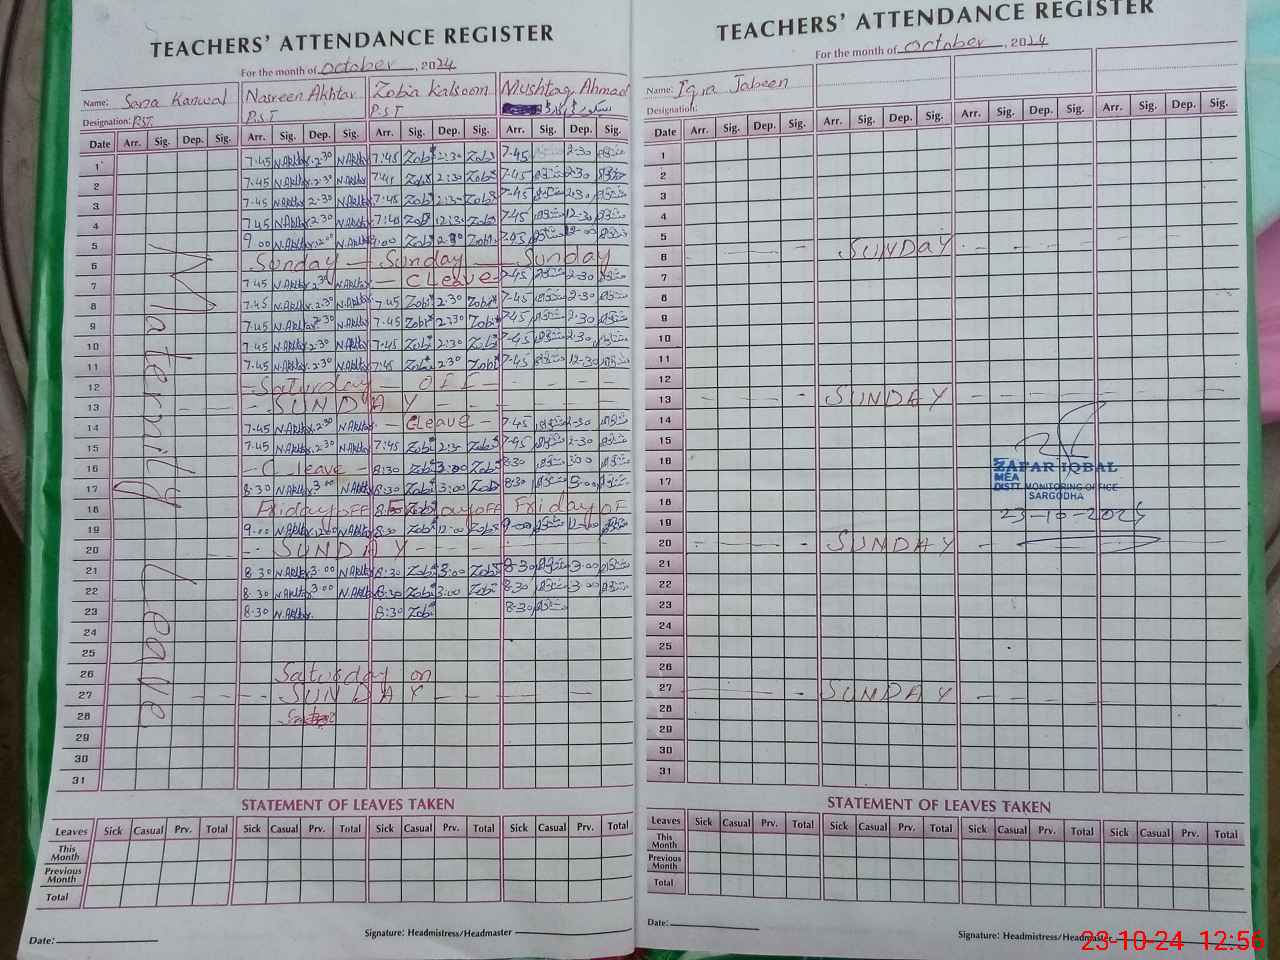 TEACHERS' ATTENDANCE REGISTER
For the month of October, 2024
Name: Sana Kanwal Nasreen Akhtar Zobia Kalsoom Mushtaq Ahmad
Designation: P.S.T. P.S.T P.S.T
Date Arr. Sig. Dep. Sig. Arr. Sig. Dep. Sig. Arr. Sig. Dep. Sig. Arr. Sig. Dep. Sig.
Maternity Leave
1 7.45 N.Akhtar 2.30 N.Akhtar 7:45 Zobi 2:30 Zobi 7-45 2-30
2 7.45 N.Akhtar 2.30 N.Akhtar 7:45 Zobi 2:30 Zobi 7-45 2-30
3 7.45 N.Akhtar 2.30 N.Akhtar 7:45 Zobi 2:30 Zobi 7-45 2-30
4 7.45 N.Akhtar 2.30 N.Akhtar 7:45 Zobi 12:30 Zobi 7-45 12-30
5 9.00 N.Akhtar 12.00 N.Akhtar 9:00 Zobi Zobi 7-45 12-00
6 Sunday - Sunday - Sunday
7 7.45 N.Akhtar 2.30 N.Akhtar - C Leave - 7-45 2-30
8 7.45 N.Akhtar 2.30 N.Akhtar 7.45 Zobi 2:30 Zobi 7-45 2-30
9 7.45 N.Akhtar 2.30 N.Akhtar 7.45 Zobi 2:30 Zobi 7-45 2-30
10 7.45 N.Akhtar 2.30 N.Akhtar 7:45 Zobi 2:30 Zobi 7-45 2-30
11 7.45 N.Akhtar 2.30 N.Akhtar 7:45 Zobi 2:30 Zobi 7-45 12-30
12 - Saturday - OFF -
13 - SUNDAY -
14 7.45 N.Akhtar 2.30 N.Akhtar - C Leave - 7-45 2-30
15 7.45 N.Akhtar 2.30 N.Akhtar 7:45 Zobi 2:30 Zobi 7-45 2-30
16 - C leave - 8:30 Zobi 3:00 Zobi 8-30 3-00
17 8.30 N.Akhtar 3.00 N.Akhtar 8:30 Zobi 3:00 Zobi 8-30 3-00
18 Friday OFF 8:30 Zobi day OFF Friday OF
19 9.00 N.Akhtar 12.00 N.Akhtar 8:30 Zobi 12:00 Zobi 9-00 12-00
20 - SUNDAY -
21 8.30 N.Akhtar 3.00 N.Akhtar 8:30 Zobi 3:00 Zobi 8-30 3-00
22 8.30 N.Akhtar 3.00 N.Akhtar 8:30 Zobi 3:00 Zobi 8-30 3-00
23 8.30 N.Akhtar 8:30 Zobi 8-30
24
25
26 Saturday on
27 - SUNDAY -
28
29
30
31
STATEMENT OF LEAVES TAKEN
Leaves Sick Casual Prv. Total Sick Casual Prv. Total Sick Casual Prv. Total Sick Casual Prv. Total
This Month
Previous Month
Total
Date:
Signature: Headmistress/Headmaster
TEACHERS' ATTENDANCE REGISTER
For the month of October, 2024
Name: Iqra Jabeen
Designation:
Date Arr. Sig. Dep. Sig. Arr. Sig. Dep. Sig. Arr. Sig. Dep. Sig. Arr. Sig. Dep. Sig.
1
2
3
4
5
6 SUNDAY
7
8
9
10
11
12
13 SUNDAY
14
15
16 ZAFAR IQBAL
MEA
17 DISTT. MONITORING OFFICE
SARGODHA
18
19 23-10-2025
20 SUNDAY
21
22
23
24
25
26
27 SUNDAY
28
29
30
31
STATEMENT OF LEAVES TAKEN
Leaves Sick Casual Prv. Total Sick Casual Prv. Total Sick Casual Prv. Total Sick Casual Prv. Total
This Month
Previous Month
Total
Date:
Signature: Headmistress/Headmaster
23-10-24 12:56